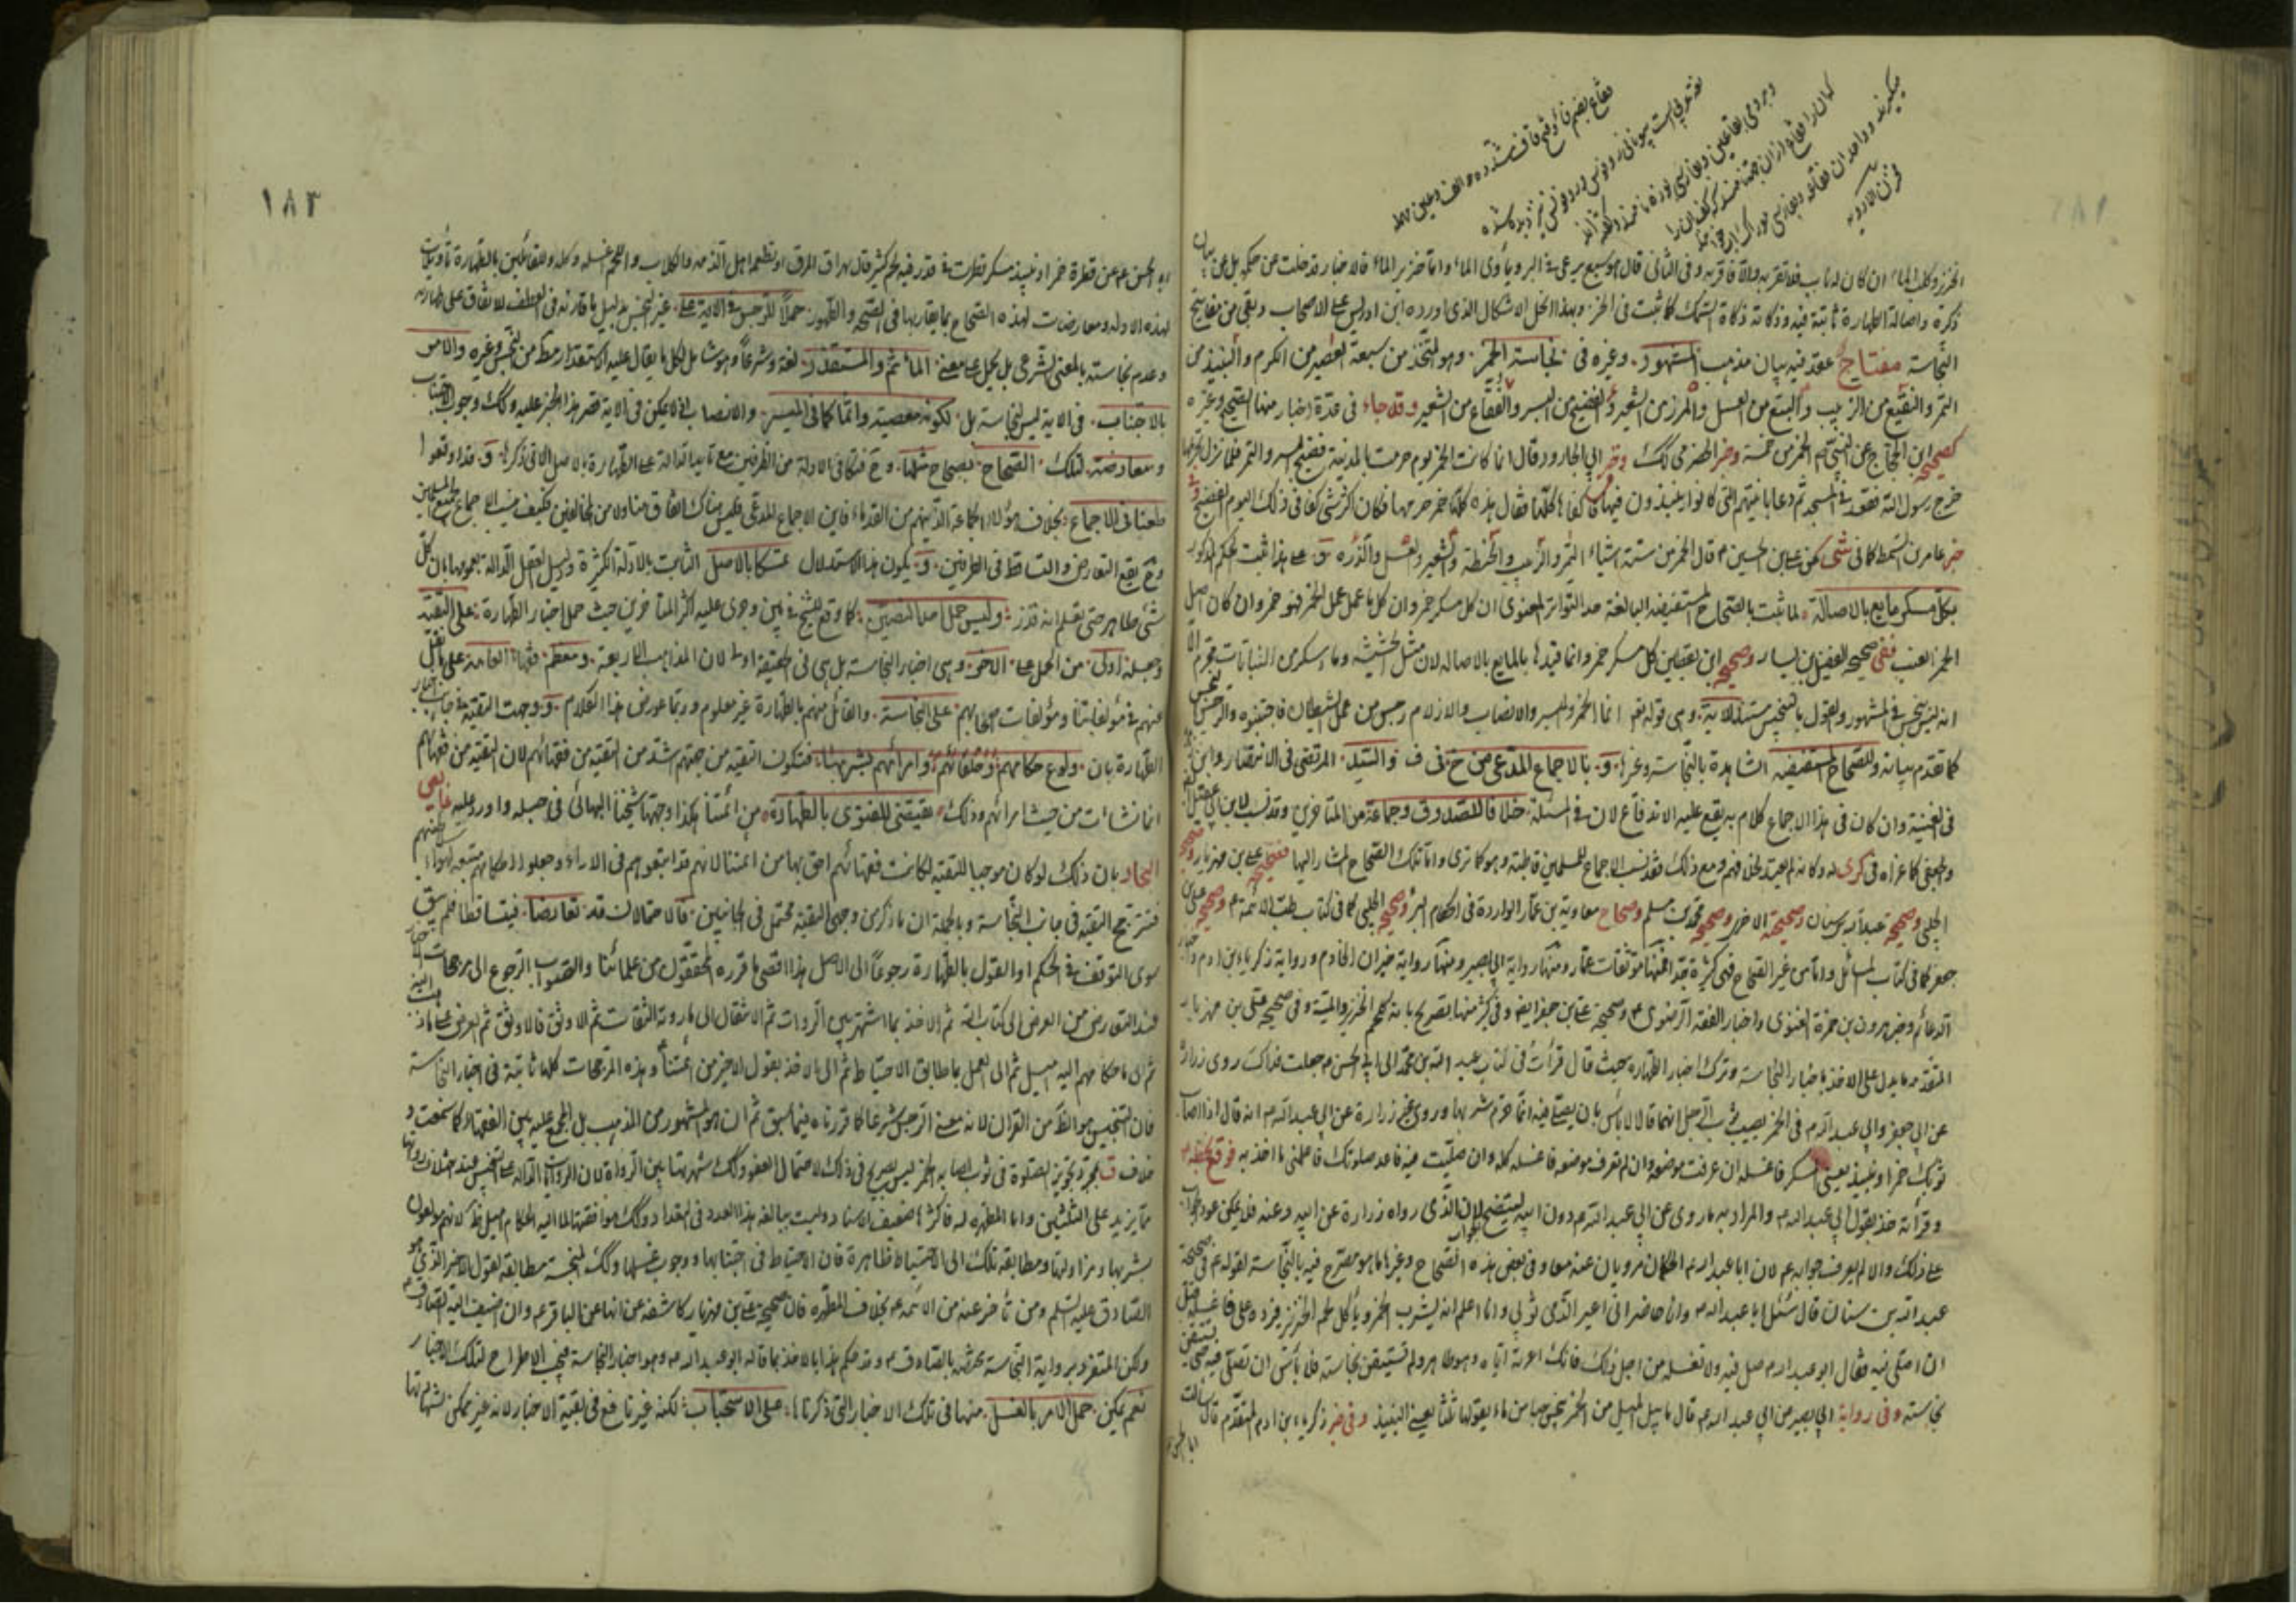 فقاع بضم فا و فتح قاف مشدده و الف و عین مهمله
١٨٣
الخنزير وكلب الماء ان كان له ناب فلا تقربه والا فاقربه وفى الثانى قال هو سبع يرعى فى البر ويأوى الماء واما خنزير الماء فالاخبار قد خلت عن حكمه بل عن بيان
ذكره واصالة الطهارة ثابتة فيه وذكاته ذكاة السمك كما ثبت فى الخز وبهذا انحل الاشكال الذى اورده ابن ادريس على الاصحاب وبقى من مفاتيح
النجاسة مفتاح عقد فيه بيان مذهب المشهور وغيره فى نجاسة الخمر وهو المتخذ من سبعة العصير من الكرم والنبيذ من
التمر والنقيع من الزبيب والبتع من العسل والمزر من الشعير والفضيخ من البسر والفقاع من الشعير وقد جاء فى عدة اخبار منها الصحيح وغيره
كصحيح ابن الحجاج عن النبى الخمر من خمسة وخبر الحضرمى كذلك وخبر ابى الجارود قال انما كانت الخمر يوم حرمت بالمدينة فضيخ البسر والتمر فلما نزل تحريمها
خرج رسول الله فقعد فى المسجد ثم دعا بآنيتهم التى كانوا ينبذون فيها فكفاها كلها فقال هذه كلها خمر حرمها فكان اكثر شئ كفا فى ذلك اليوم الفضيخ وفى
خبر عامر بن السمط كما فى شى عن على بن الحسين م قال الخمر من ستة اشياء التمر والزبيب والحنطة والشعير والعسل والذرة و على هذا ثبت الحكم المذكور
بكل مسكر مايع بالاصالة لما ثبت بالصحاح المستفيضة البالغة حد التواتر المعنوى ان كل مسكر خمر وان كل ما عمل عمل الخمر فهو خمر وان كان اصل
الخمر العنب ففى صحيح الفضيل بن يسار وصحيح ابن يقطين كل مسكر خمر وانما قيدها بالمايع بالاصالة لان مثل الحشيشة وما يسكر من النباتات محرم الا
انه ليس بنجس فى المشهور والقول بالتنجيس مستند للاية وهى قوله تعالى انما الخمر والميسر والانصاب والازلام رجس من عمل الشيطان فاجتنبوه والرجس النجس
كما تقدم بيانه وللصحاح المستفيضة الشاهدة بالنجاسة وغيرها و بالاجماع المدعى من خ فى ف و السيد المرتضى فى الانتصار وابن زهرة
فى الغنية وان كان فى هذا الاجماع كلام به يقع عليه الاندفاع لان فى المسئلة خلافا للصدوق وجماعة من المتاخرين وقد نسب لابن ابى عقيل
والجعفى كما عزاه فى كرى له وكانه لم يعتد بخلافهم ومع ذلك فقد نسب الاجماع للمسلمين قاطبة وهو كما ترى واما تلك الصحاح المشار اليها فصحيح على بن مهزيار وصحيح
الحلبى وصحيح عبد الله بن سنان وصحيحته الاخرى وصحيح محمد بن مسلم وصحاح معاوية بن عمار الواردة فى احكام البئر وصحيح الحلبى كما فى كتاب طب الائمة م وصحيح على بن
جعفر كما فى كتاب المسائل واما من غير الصحاح فهى كثيرة جدا فمنها موثقات عمار ومنها رواية ابى بصير ومنها رواية خيران الخادم ورواية زكريا بن ادم وخبر
الدعائم وخبر هرون بن حمزة الغنوى واخبار الفقه الرضوى م وصحيحة على بن جعفر ايضا وفى كثير منها تصريح بانه كلحم الخنزير والميتة وفى صحيح على بن مهزيار
المتقدمة ما يدل على الاخذ باخبار النجاسة وترك اخبار الطهارة حيث قال قرأت فى كتاب عبد الله بن محمد الى ابى الحسن م جعلت فداك روى زرارة
عن ابى جعفر وابى عبد الله م فى الخمر يصيب ثوب الرجل انهما قالا لا بأس بان يصلى فيه انما حرم شربها وروى غير زرارة عن ابى عبد الله م انه قال اذا اصاب
ثوبك خمر او نبيذ يعنى المسكر فاغسله ان عرفت موضعه وان لم تعرف موضعه فاغسله كله وان صليت فيه فاعد صلوتك فاعلمنى ما اخذ به فوقع بخطه م
وقرأته خذ بقول ابى عبد الله م والمراد به ما روى عن ابى عبد الله م دون ابيه ليتضح الجواب لان الذى رواه زرارة عن ابيه وعنه فلا يمكن عود الجواب
على ذلك والا لم يعرف جوابه م لان ابا عبد الله م الحكمان مرويان عنه معا وفى بعض هذه الصحاح وغيرها ما هو مصرح فيه بالنجاسة لقوله م فى صحيحة
عبد الله بن سنان قال سئل ابا عبد الله م وانا حاضر انى اعير الذمى ثوبى وانا اعلم انه يشرب الخمر ويأكل لحم الخنزير فيرده على فاغسله قبل
ان اصلى فيه فقال ابو عبد الله م صل فيه ولا تغسله من اجل ذلك فانك اعرته اياه وهو طاهر ولم تستيقن نجاسته فلا بأس ان تصلى فيه حتى تستيقن
نجاسته وفى رواية ابى بصير عن ابى عبد الله م قال ما يبل الميل من الخمر ينجس حبا من ماء يقولها ثلثا يعنى النبيذ وفى خبر زكريا بن ادم المتقدم قال سألت
ابا الحسن
ابا الحسن م عن قطرة خمر او نبيذ مسكر قطرت فى قدر فيه لحم كثير قال يهراق المرق او تطعمه اهل الذمة والكلاب واللحم اغسله وكله وللقائلين بالطهارة تأويلات
لهذه الادلة ومعارضات لهذه الصحاح بما يقاربها فى الصحة والظهور حملا للرجس فى الاية على غير النجس بدليل ما قارنه فى العطف للاتفاق على طهارته
وعدم نجاسته بالمعنى الشرعى بل يحمل على معنى المأثم والمستقذر لغة وشرعا وهو شامل لكل ما يقال عليه الاستقذار مطلقا من النجس وغيره والامر
بالاجتناب فى الاية ليس لنجاسة بل لكونه معصية واثما كما فى الميسر والانصاب اذ لا يمكن فى الاية قصر هذا الخبر عليه وكذلك وجوب الاجتناب
ومعارضة لتلك الصحاح بصحاح مثلها وح فتكافئ الادلة من الطرفين مع تأييد الدالة على الطهارة بالاصل الاتى ذكره و قد اوقعوا
طعنا فى الاجماع بخلاف هؤلاء الجماعة الذينهم من القدماء فاين الاجماع المدعى فليس هناك اتفاق متناول من المخالفين فكيف ينسب الاجماع لجميع المسلمين
وح يقع التعارض والتساقط فى الطرفين و يكون هذا الاستدلال تمسكا بالاصل الثابت بالادلة الكثيرة ودليل العقل الدالة بعمومها بان كل
شئ طاهر حتى تعلم انه قذر وليس حمل احد النصين كما وقع للشيخ فى يبين وجرى عليه اكثر المتأخرين حيث حمل اخبار الطهارة على التقية
وجعله اولى من الحمل على الاخر وهى اخبار النجاسة بل هى فى الحقيقة اولى لان المذاهب الاربعة ومعظم فقهاء العامة على ما نقل
عنهم فى مؤلفاتنا ومؤلفات صحابهم على النجاسة والقائل منهم بالطهارة غير معلوم وربما عورض هذا الكلام و وجهت التقية فى جانب اخبار
الطهارة بان ولوع حكامهم وخلفائهم وامرائهم بشربها فتكون التقية من جهتهم اشد من التقية من فقهائهم لان التقية من فقهائهم
انما نشأت من حيث امرائهم وذلك يقتضى للفتوى بالطهارة من ائمتنا هكذا وجهها شيخنا البهائى فى حبله واورد عليه فى
البحار بان ذلك لو كان موجبا للتقية لكانت فقهائهم احق بها من ائمتنا لانهم قد اتبعوهم فى الاراء وجعلوا احكامهم متبعة لهواء
فترجح التقية فى جانب النجاسة وبالجملة ان ما ذكر من وجهى التقية محتمل فى الجانبين فالاحتمالان قد تعارضا فيتساقطا فلم يبق
سوى التوقف فى الحكم او القول بالطهارة رجوعا الى الاصل هذا اقصى ما قرره المحققون من علمائنا والصواب الرجوع الى مرجحات الاخبار
عند التعارض من العرض الى كتاب الله ثم الاخذ بما اشتهر بين الروات ثم الانتقال الى ما روته الثقات ثم الاوثق فالاوثق ثم العرض على
ثم الى ما حكامهم اليه اميل ثم الى العمل بما طابق الاحتياط ثم الى الاخذ بقول الاخير من ائمتنا وهذه المرجحات كلها ثابتة فى اخبار النجاسة
فان التنجيس هو الظ من القران لانه معنى الرجس شرعا كما قررناه فيما سبق ثم ان هو المشهور من المذهب بل المجمع عليه بين الفقهاء كما سمعت و
خلاف ق بمجرد تجويز الصلوة فى ثوب اصابه الخمر ليس بصريح فى ذلك لاحتمال العفو وكذلك شهرتها بين الرواة لان الروايات الدالة على التنجيس عند اختلاف رواتها
مما يزيد على الثلثين واما المطهرة له فاكثرها ضعيف الاسناد وليست ببالغة هذا العدد فى المقدار وكذلك موافقتها لما اليه الحكام اميل لانهم مولعون
بشربها ومزاولتها ومطابقة تلك الى الاحتياط ظاهرة فان الاحتياط فى اجتنابها ووجوب غسلها وكذلك لنجسة مطابقة لقول الاخير الذى هو
الصادق عليه السلم ومن تأخر عنه من الائمة م بخلاف المطهرة فان صحيح على بن مهزيار كاشفة عن انها عن الباقر م وان اضيف اليه الصادق م
ولكن المتفرد برواية النجاسة مختصة بالصادق م وقد حكم هذا بالاخذ بما قاله ابو عبد الله م وهو اخبار النجاسة فيجب الاطراح لتلك الاخبار
نعم يمكن حمل الامر بالغسل منها فى تلك الاخبار التى ذكرناها على الاستحباب لكنه غير نافع فى بقية الاخبار لانه غير ممكن لشهادتها